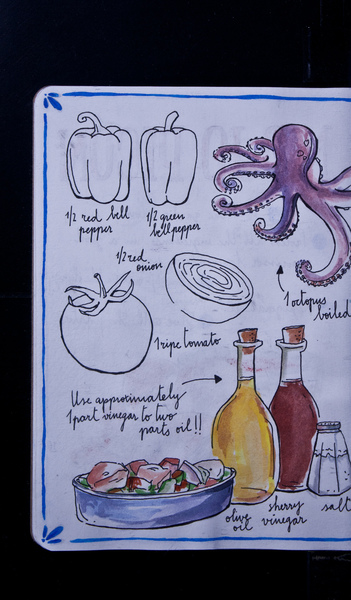 1/2 red bell
pepper
1/2 green
bell pepper
1/2 red
onion
1 octopus
boiled
1 ripe tomato
Use approximately
1 part vinegar to two
parts oil!!
olive
oil
sherry
vinegar
salt